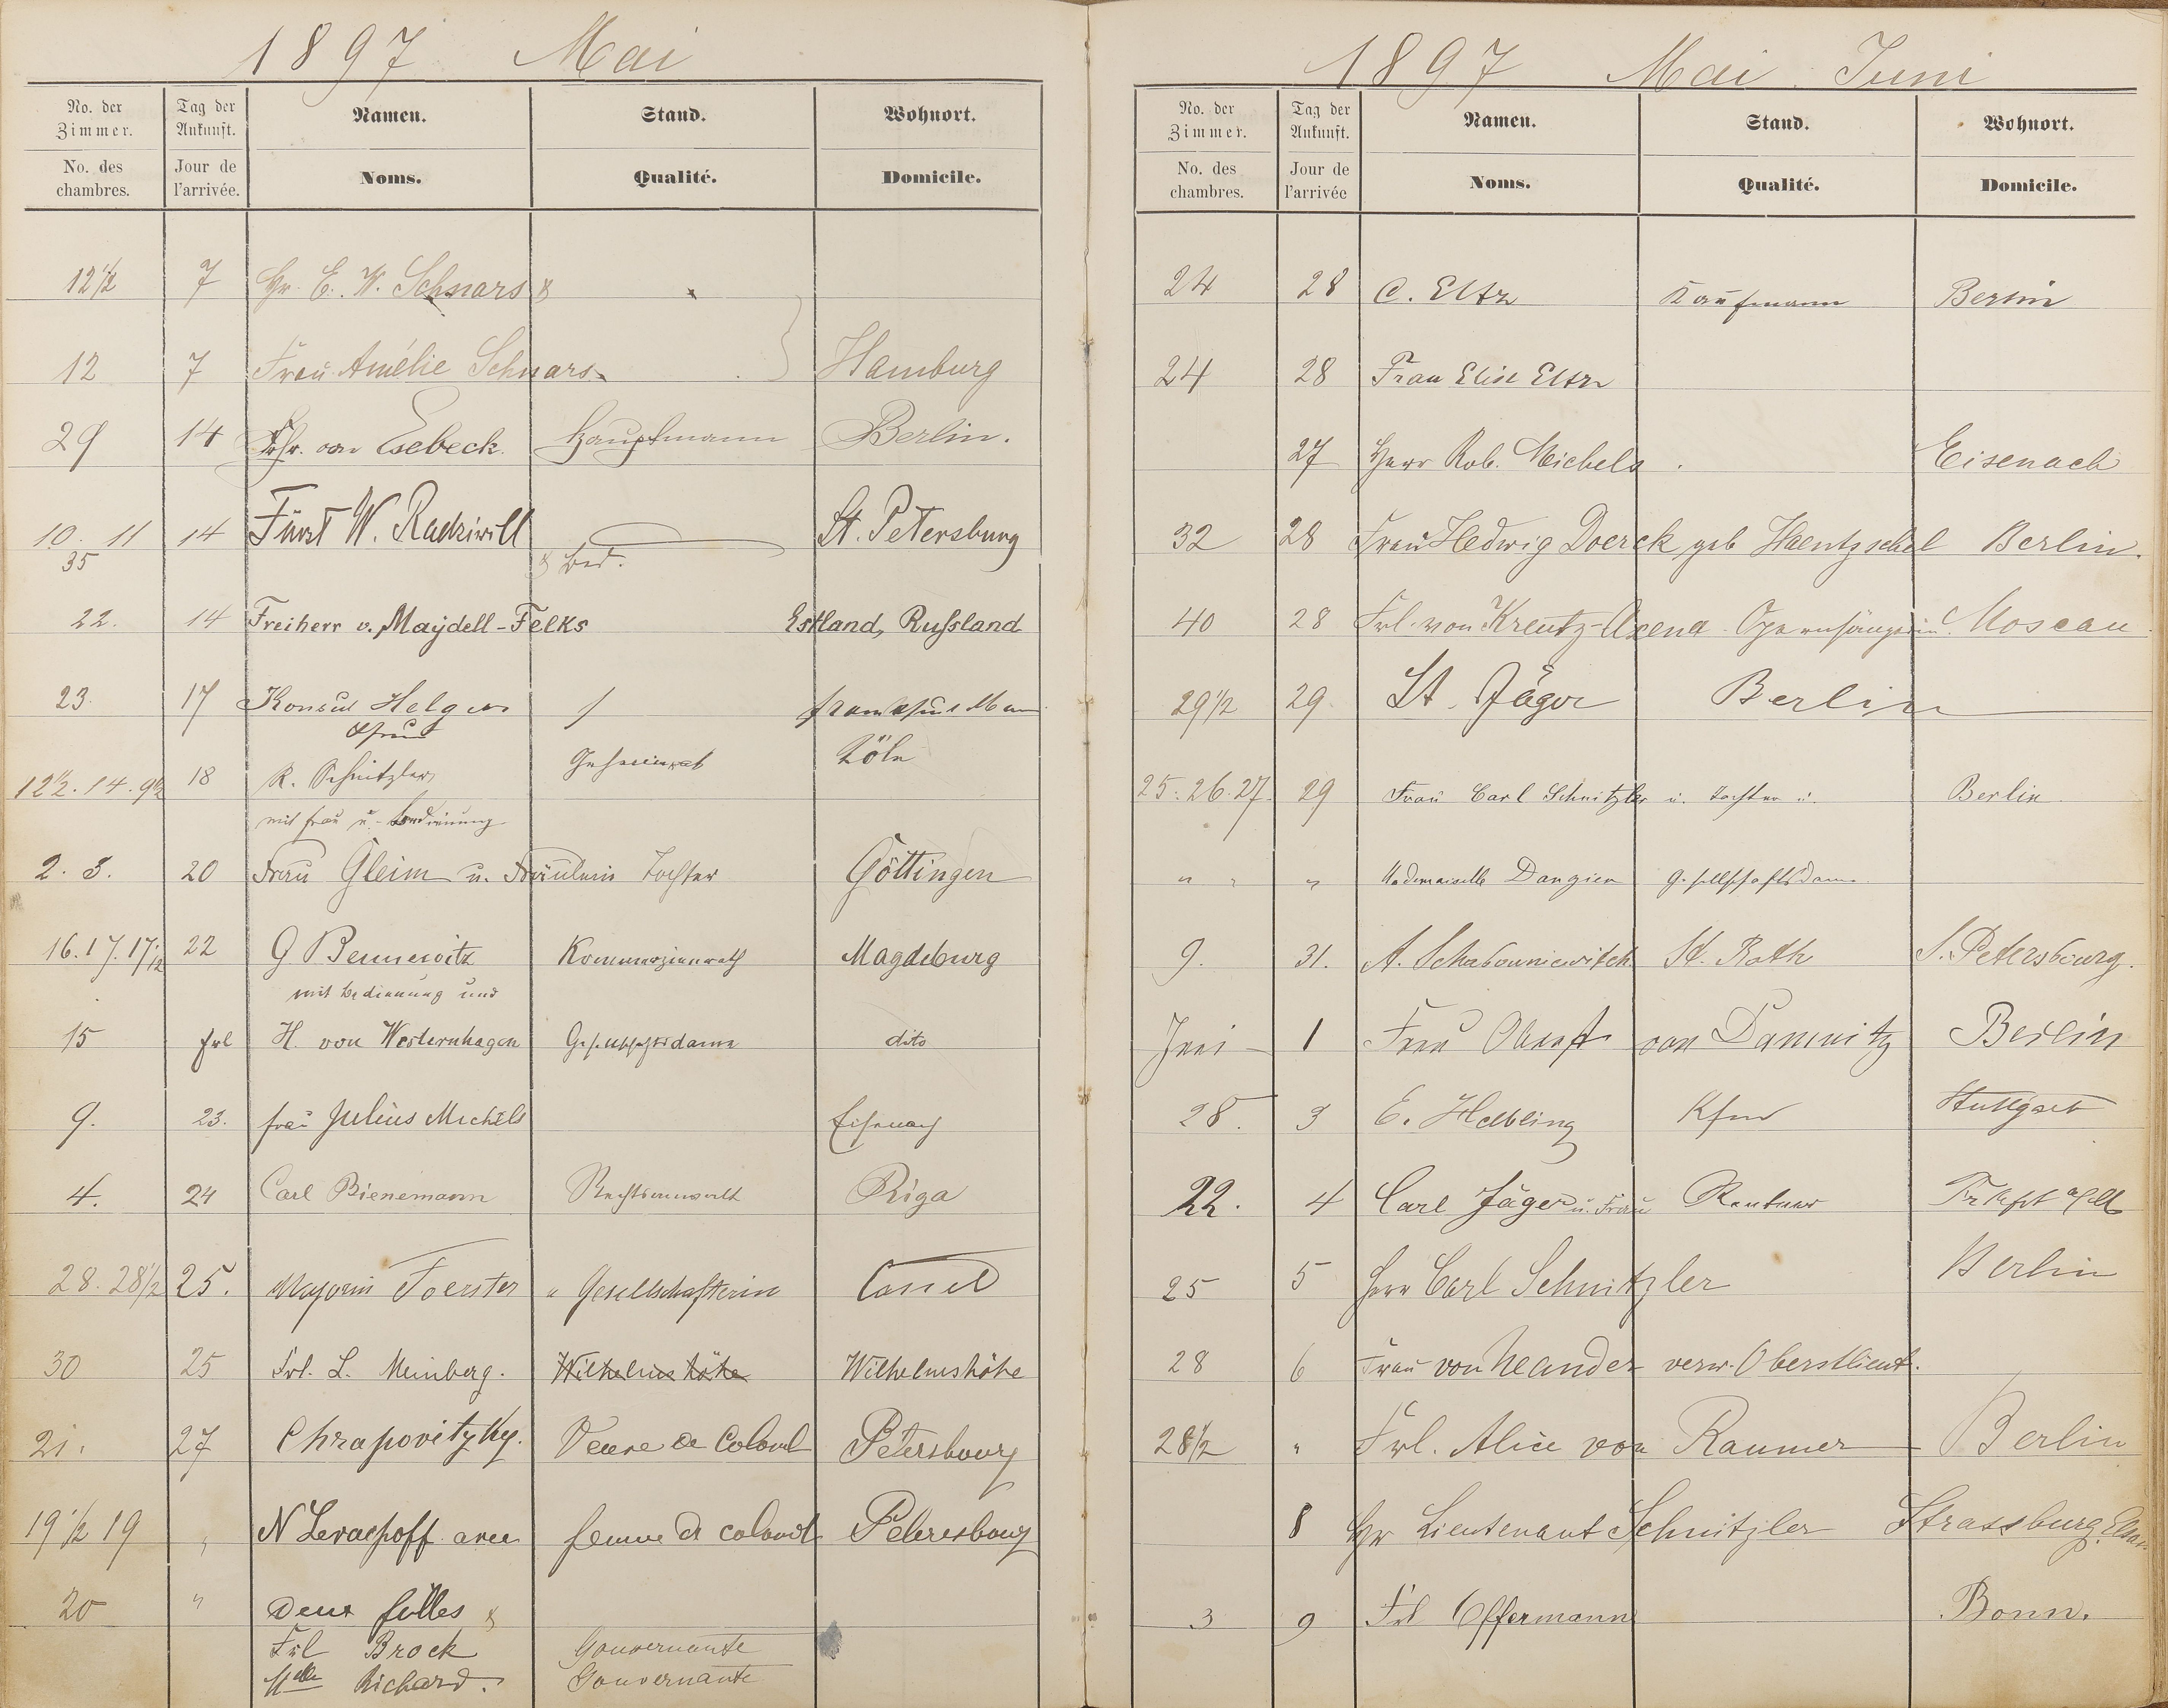 1897 Mai
No. der Zimmer. Tag der Ankunft. Namen. Stand. Wohnort.
No. des chambres. Jour de l'arrivée. Noms. Qualité. Domicile.
12 1/2 7 Hr. E. W. Schnars &
12 7 Frau Amélie Schnars Hamburg
29 14 Frhr. von Esebeck Hauptmann Berlin.
10. 11 14 Fürst W. Radziwill St. Petersburg
35 & Bed.
22. 14 Freiherr v. Maÿdell-Felks Estland, Russland
23. 17 Konsul
18 R. Schnitzler Geheimrat Köln
12 1/2. 14. 9 1/2
mit Frau u. Bedienung
2. 3. 20 Frau Gleim u. Fräulein Tochter Göttingen
16. 17. 17 1/2 22 G Bennewitz Kommerzienrath Magdeburg
mit Bedienung und
15 frl H. von Westernhagen Gesellschaftsdame dito
9. 23. frau Julius Michels Eisenach
4. 24 Carl Bienemann Rechtsanwalt Riga
28. 28 1/2 25. Majorin Foerster u Gesellschafterin Cassel
30 25 Frl. L. Meinberg. Wilhelmshöhe Wilhelmshöhe
21. 27 Chrapovitzky. Veuve de Colonel Petersbourg
19 1/2 19 " N avec femme de colonel Petersbourg
20 " Deux filles &
Frl Brock Gouvernante
Melle Richard. Gouvernante
1897 Mai Juni
No. der Zimmer. Tag der Ankunft. Namen. Stand. Wohnort.
No. des chambres. Jour de l'arrivée Noms. Qualité. Domicile.
24 28 C. Eltze Kaufmann Berlin
24 28 Frau Elise Eltze
27 Herr Rob. Michels Eisenach
32 28 Frau Hedwig Doerck geb Haentzschel Berlin.
40 28 Frl. von Kreutz-Axena Opernsängerin Moscau
29 1/2 29. Lt. Jäger Berlin
25. 26. 27. 29 Frau Carl Schnitzler u. Tochter u. Berlin
" " " Mademoiselle Gesellschaftsdame
9. 31. A. Schabouniewitch St. Rath S. Petersbourg.
Juni 1 Frau Oberst von Damnitz Berlin
28. 3 E. Helbling Kfm Stuttgart
22. 4 Carl Jäger u. Frau Rentner Frkft a/M
25 5 Herr Carl Schnitzler Berlin
28 6 Frau von Neander verw. Oberstlieut.
28 1/2 " Frl. Alice von Raumer Berlin
8 Hr Lieutenant Schnitzler Strassburg. Elsas.
3 9 Frl Offermann Bonn.